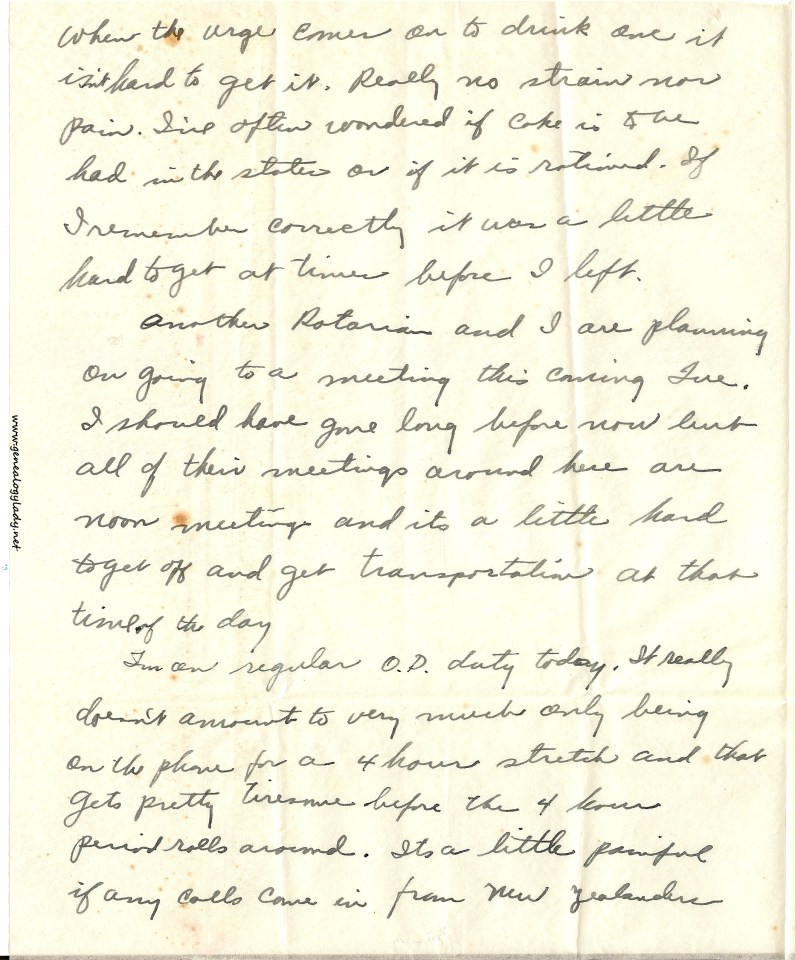 When the urge comes on to drink one it
isn't hard to get it. Really no strain nor
pain. I've often wondered if Coke is to be
had in the states or if it is rationed. If
I remember correctly it was a little
hard to get at times before I left.
Another Rotarian and I are planning
on going to a meeting this coming Tue.
I should have gone long before now but
all of their meetings around here are
noon meetings and its a little hard
to get off and get transportation at that
time of the day
I'm on regular O.D. duty today. It really
doesn't amount to very much only being
on the phone for a 4 hour stretch and that
gets pretty tiresome before the 4 hour
period rolls around. Its a little painful
if any calls come in from New Zealanders
www.genealogylady.net